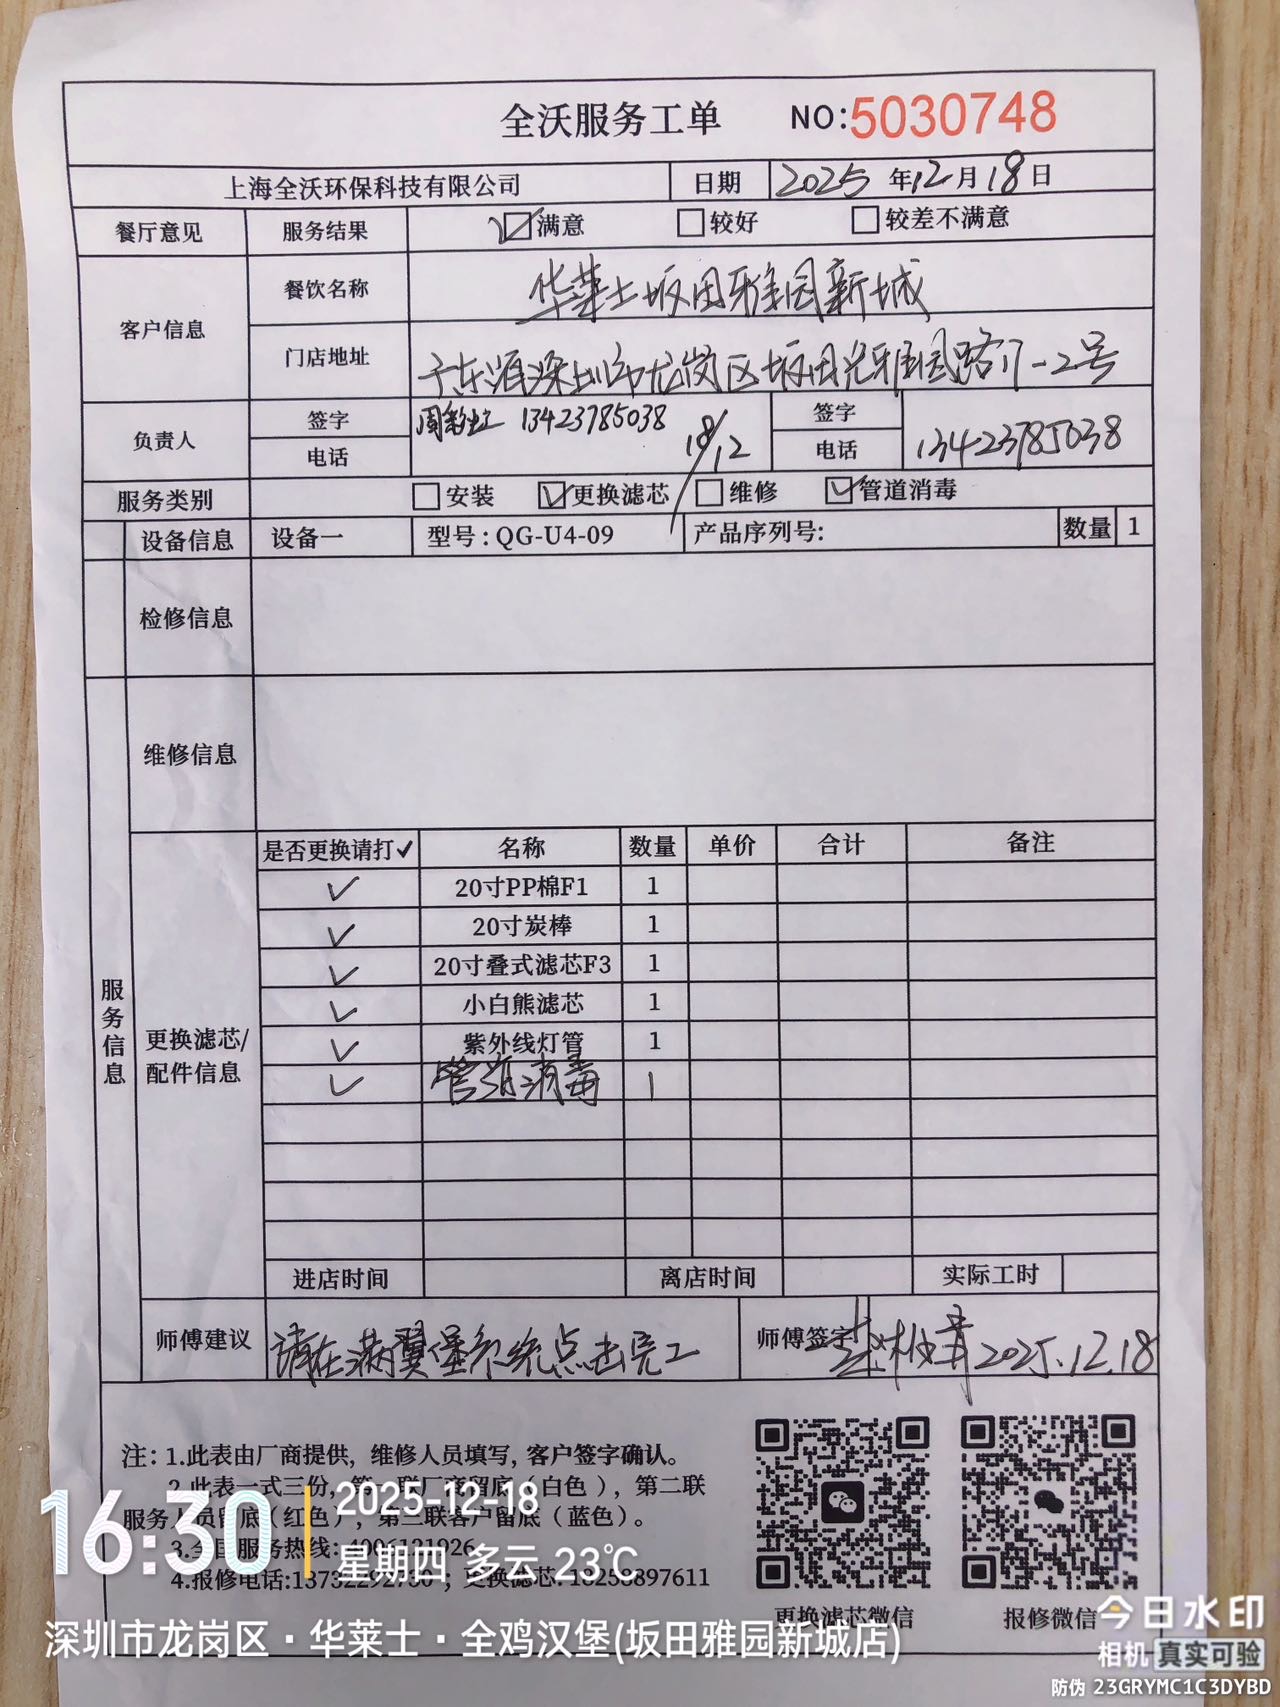 全沃服务工单 NO:5030748
上海全沃环保科技有限公司 日期 2025年12月18日
餐厅意见 服务结果 满意 较好 较差不满意
客户信息 餐饮名称 华莱士坂田雅园新城
门店地址 广东省深圳市龙岗区坂田光雅园路17-2号
负责人 签字 13423785038 18/12 签字
电话 电话 13423785038
服务类别 安装 更换滤芯 维修 管道消毒
设备信息 设备一 型号:QG-U4-09 产品序列号: 数量 1
检修信息
维修信息
服务信息
更换滤芯/配件信息
是否更换请打✓ 名称 数量 单价 合计 备注
✓ 20寸PP棉F1 1
✓ 20寸炭棒 1
✓ 20寸叠式滤芯F3 1
✓ 小白熊滤芯 1
✓ 紫外线灯管 1
✓ 管道消毒 1
进店时间 离店时间 实际工时
师傅建议 请在满翼堡系统点击完工 师傅签字 2025.12.18
注:1.此表由厂商提供,维修人员填写,客户签字确认。
2.此表一式三份,第一联厂商留底(白色),第二联
服务人员留底(红色),第三联客户留底(蓝色)。
3.全国服务热线:4006121926
4.报修电话:13732292760;更换滤芯:18258897611
更换滤芯微信 报修微信
16:30 2025-12-18
星期四 多云 23℃
深圳市龙岗区·华莱士·全鸡汉堡(坂田雅园新城店)
今日水印
相机 真实可验
防伪 23GRYMC1C3DYBD